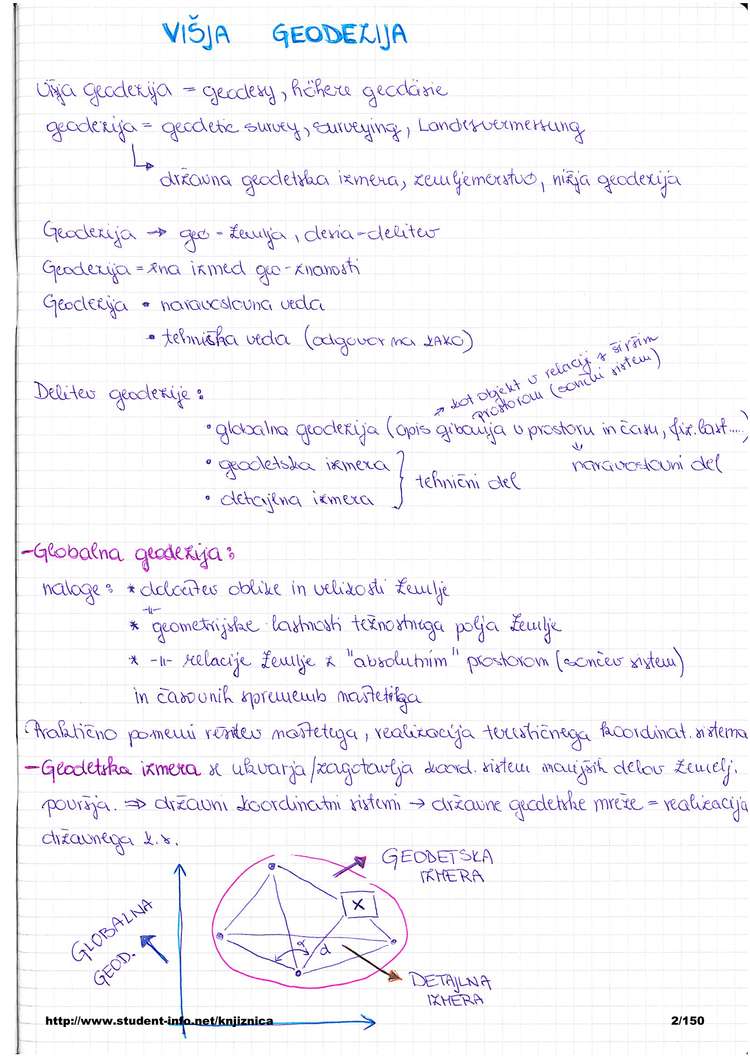 VIŠJA GEODEZIJA
Višja geodezija = geodesy, höhere geodäsie
geodezija = geodetic survey, surveying, Landesvermessung
↳ državna geodetska izmera, zemljemerstvo, nižja geodezija
Geodezija → geo - Zemlja, desia - delitev
Geodezija = ena izmed geo-znanosti
Geodezija • naravoslovna veda
• tehniška veda (odgovor na KAKO)
Delitev geodezije:
→ kot objekt v relaciji z širšim
prostorom (sončni sistem)
• globalna geodezija (opis gibanja v prostoru in času, fiz. last....)
• geodetska izmera
• detajlna izmera
tehnični del
naravoslovni del
- Globalna geodezija:
naloge: * določitev oblike in velikosti Zemlje
* -||- geometrijske lastnosti težnostnega polja Zemlje
* -||- relacije Zemlje z "absolutnim" prostorom (sončev sistem)
in časovnih sprememb naštetega
Praktično pomeni rešitev naštetega, realizacija terestičnega koordinat. sistema
- Geodetska izmera se ukvarja/zagotavlja koord. sistem manjših delov zemelj.
površja. ⇒ državni koordinatni sistemi → državne geodetske mreže = realizacija
državnega k.s.
GEODETSKA
IZMERA
X
GLOBALNA
GEOD.
α
d
DETAJLNA
IZMERA
http://www.student-info.net/knjiznica
2/150